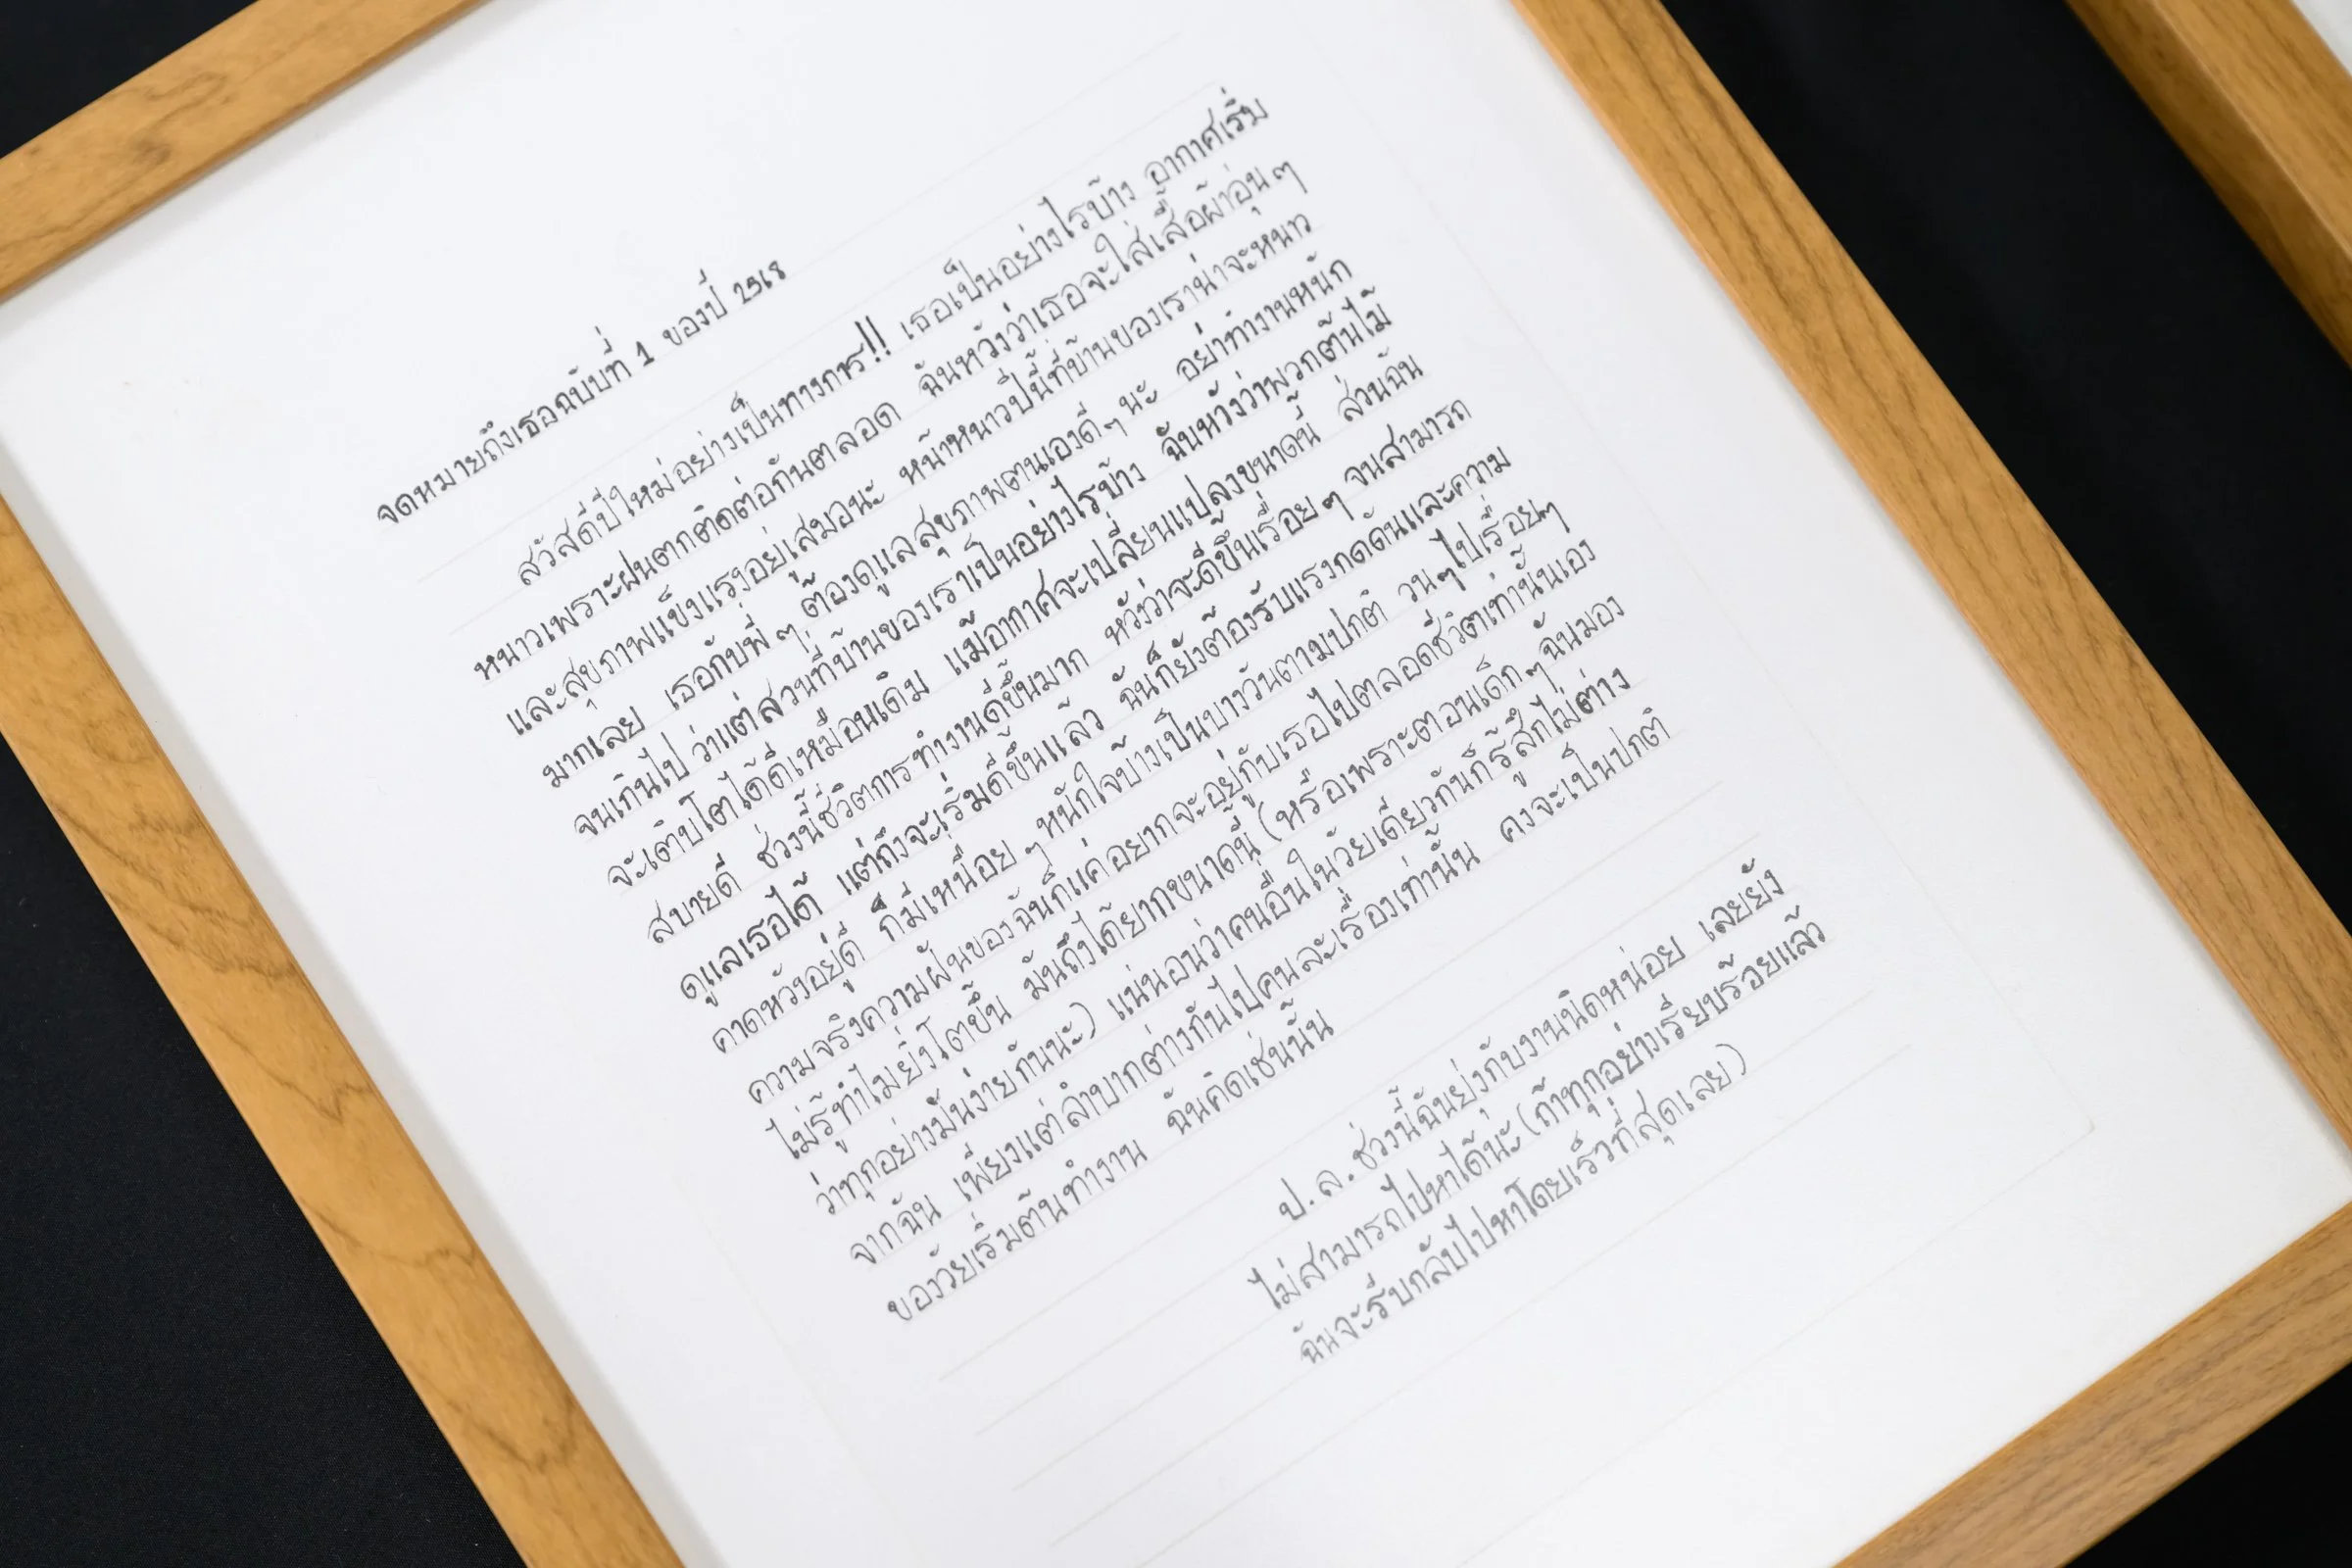 จดหมายถึงเธอฉบับที่ 1 ของปี 2568
สวัสดีปีใหม่อย่างเป็นทางการ!! เธอเป็นอย่างไรบ้าง อากาศเริ่ม
หนาวเพราะฝนตกติดต่อกันตลอด ฉันหวังว่าเธอจะใส่เสื้อผ้าอุ่นๆ
และสุขภาพแข็งแรงอยู่เสมอนะ หน้าหนาวปีนี้ที่บ้านของเราน่าจะหนาว
มากเลย เธอกับพี่ๆ ต้องดูแลสุขภาพตนเองดีๆ นะ อย่าทำงานหนัก
จนเกินไป ว่าแต่สวนที่บ้านของเราเป็นอย่างไรบ้าง ฉันหวังว่าพวกต้นไม้
จะเติบโตได้ดีเหมือนเดิม แม้อากาศจะเปลี่ยนแปลงขนาดนี้ ส่วนฉัน
สบายดี ช่วงนี้ชีวิตการทำงานดีขึ้นมาก หวังว่าจะดีขึ้นเรื่อยๆ จนสามารถ
ดูแลเธอได้ แต่ถึงจะเริ่มดีขึ้นแล้ว ฉันก็ยังต้องรับแรงกดดันและความ
คาดหวังอยู่ดี ก็มีเหนื่อยๆ หนักใจบ้างเป็นบางวันตามปกติ วนๆไปเรื่อยๆ
ความจริงความฝันของฉันก็แค่อยากจะอยู่กับเธอไปตลอดชีวิตเท่านั้นเอง
ไม่รู้ทำไมยิ่งโตขึ้น มันถึงได้ยากขนาดนี้ (หรือเพราะตอนเด็กๆ ฉันมอง
ว่าทุกอย่างมันง่ายกันนะ) แน่นอนว่าคนอื่นในวัยเดียวกันก็รู้สึกไม่ต่าง
จากฉัน เพียงแต่ลำบากต่างกันไปคนละเรื่องเท่านั้น คงจะเป็นปกติ
ของวัยเริ่มต้นทำงาน ฉันคิดเช่นนั้น
ป.ล. ช่วงนี้ฉันยุ่งกับงานนิดหน่อย เลยยัง
ไม่สามารถไปหาได้นะ (ถ้าทุกอย่างเรียบร้อยแล้ว
ฉันจะรีบกลับไปหาโดยเร็วที่สุดเลย)